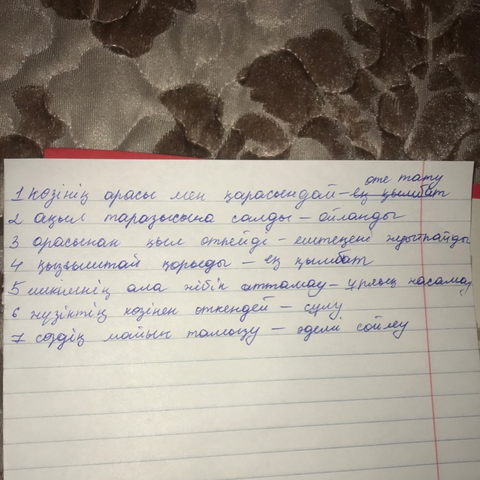 өте тату
1 көзінің арасы мен қарасындай - ең қымбат
2 ақыл таразысына салды - ойланды
3 арасынан қыл өтпейді -
4 қызғыштай қорыды - ең қымбат
5 ешкімнің ала жібін аттамау - ұрлық жасамау
6 жүзіктің көзінен өткендей - сұлу
7 сөздің майын тамызу - әдемі сөйлеу